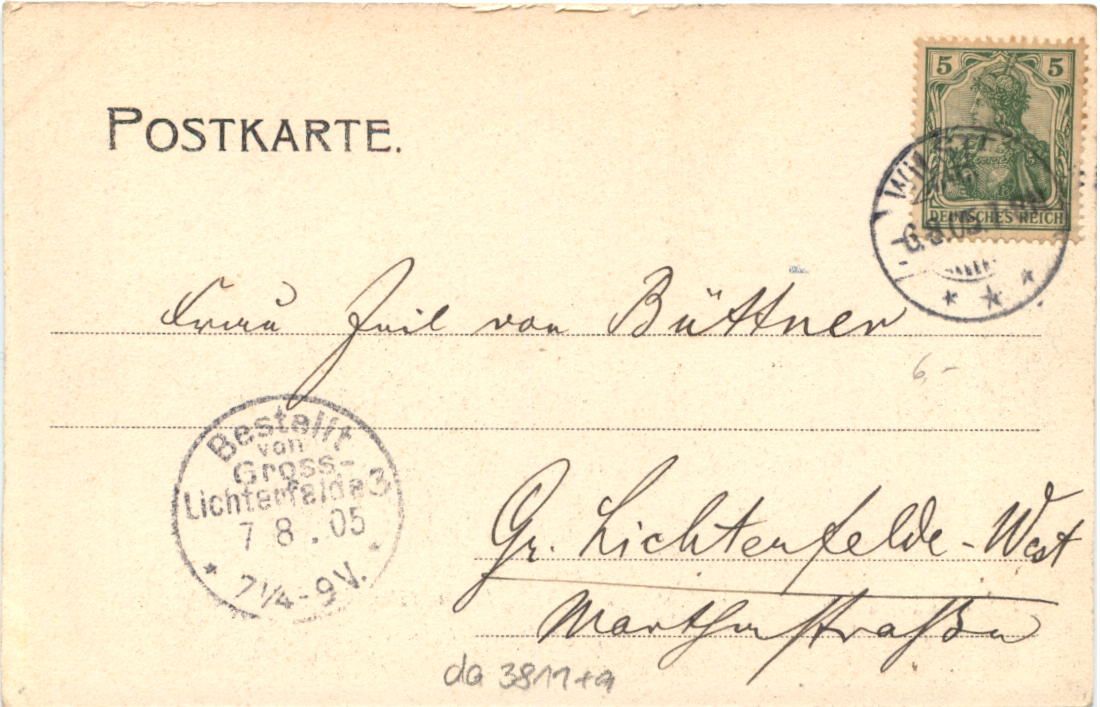 POSTKARTE.
5 5
DEUTSCHES REICH
6.8.05.
Frau Zeil von Büttner
6,-
Bestellt
von
Gross-
Lichterfelde 3
7 8 . 05
* 7¼-9V.
Gr. Lichterfelde-West
Marthastraße
da 3811+a